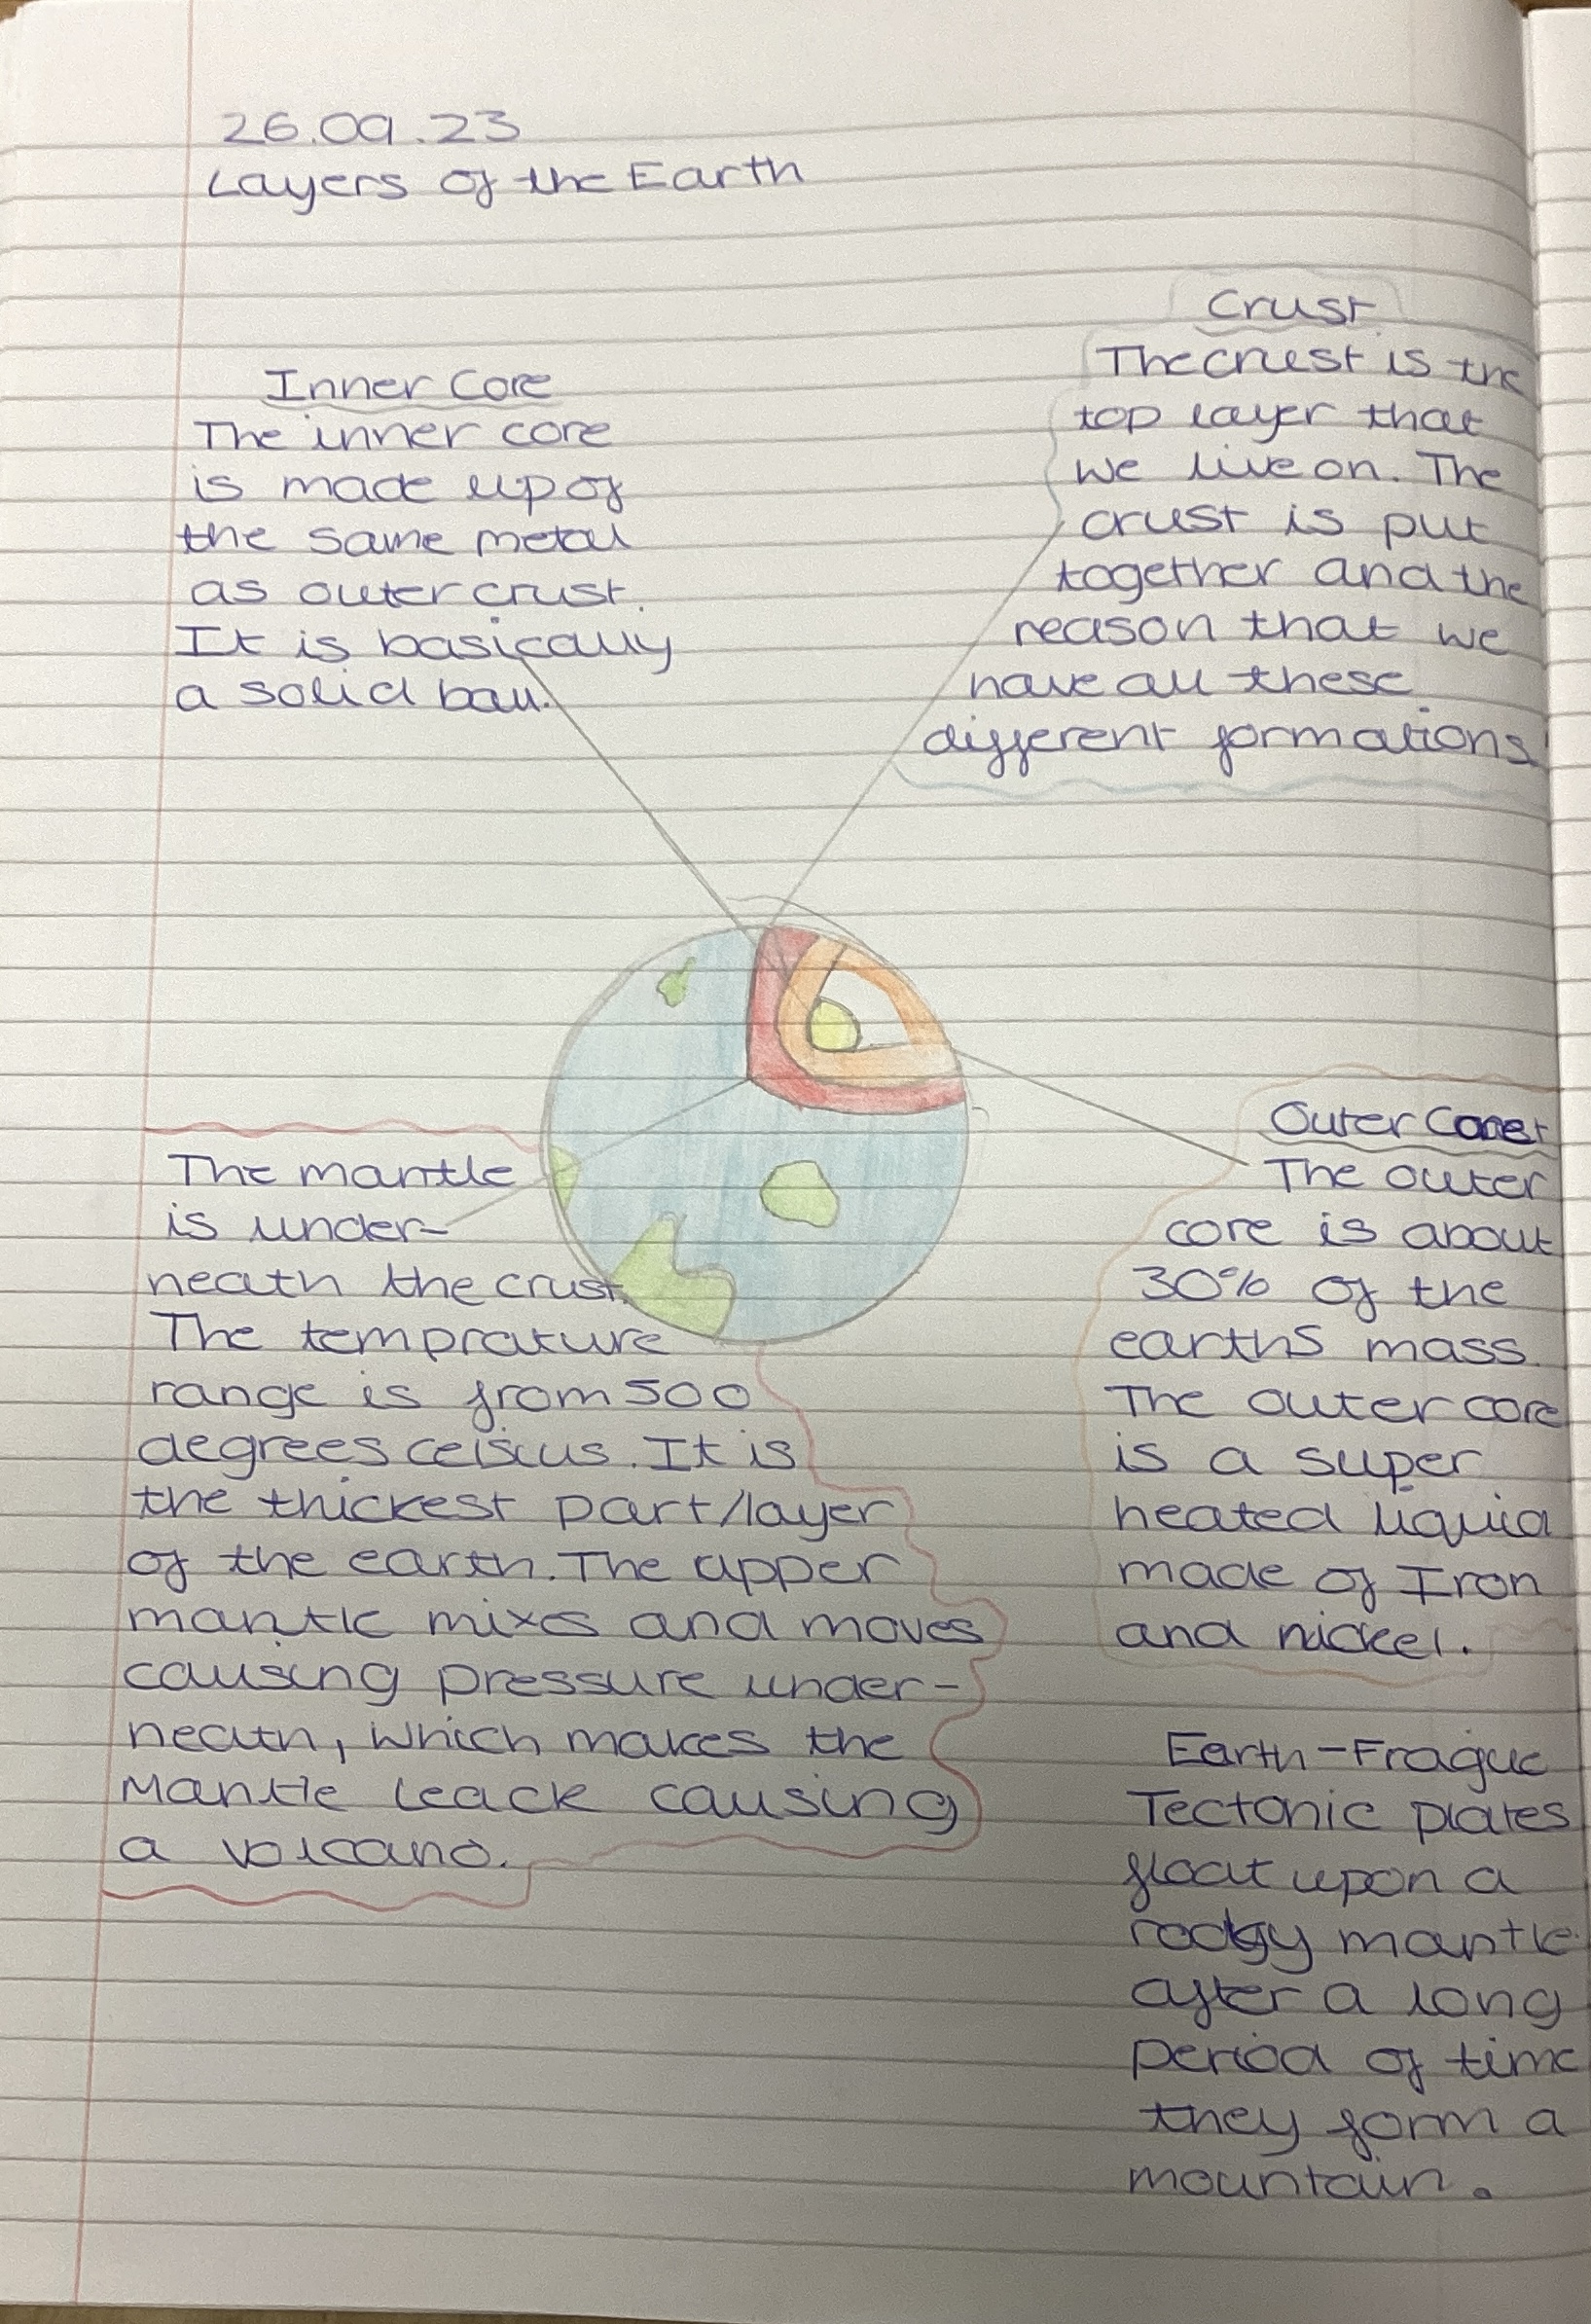 26.09.23
Layers of the Earth
Inner Core
The inner core
is made up of
the same metal
as outer crust.
It is basically
a solid ball.
Crust
The crust is the
top layer that
we live on. The
crust is put
together and the
reason that we
have all these
different formations.
The mantle
is under-
neath the crust.
The temprature
range is from 500
degrees celsius. It is
the thickest part/layer
of the earth. The upper
mantle mixes and moves
causing pressure under-
neath, which makes the
Mantle leack causing
a volcano.
Outer Core
The outer
core is about
30% of the
earths mass.
The outer core
is a super
heated liquid
made of Iron
and nickel.
Earth-Fragile
Tectonic plates
float upon a
mantle
after a long
period of time
they form a
mountain.